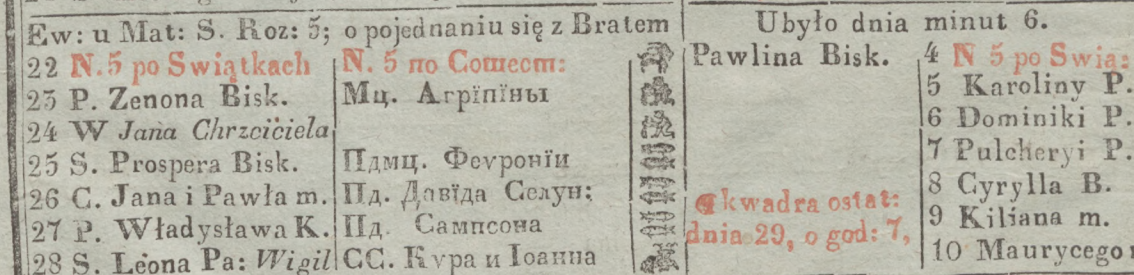 Ew: u Mat: S. Roz: 5; o pojednaniu się z Bratem
Ubyło dnia minut 6.
22 N. 5 po Swiątkach
23 P. Zenona Bisk.
24 W Jana Chrzciciela
25 S. Prospera Bisk.
26 C. Jana i Pawła m.
27 P. Władysława K.
28 S. Leona Pa: Wigil
N. 5 по Сошест:
Мц. Агрїпїны
Пдмц. Феѵронїи
Пд. Давїда Селун:
Пд. Сампсона
СС. Кѵра и Іоанна
Pawlina Bisk.
kwadra ostat:
dnia 29, o god: 7,
4 N 5 po Swią:
5 Karoliny P.
6 Dominiki P.
7 Pulcheryi P.
8 Cyrylla B.
9 Kiliana m.
10 Maurycego